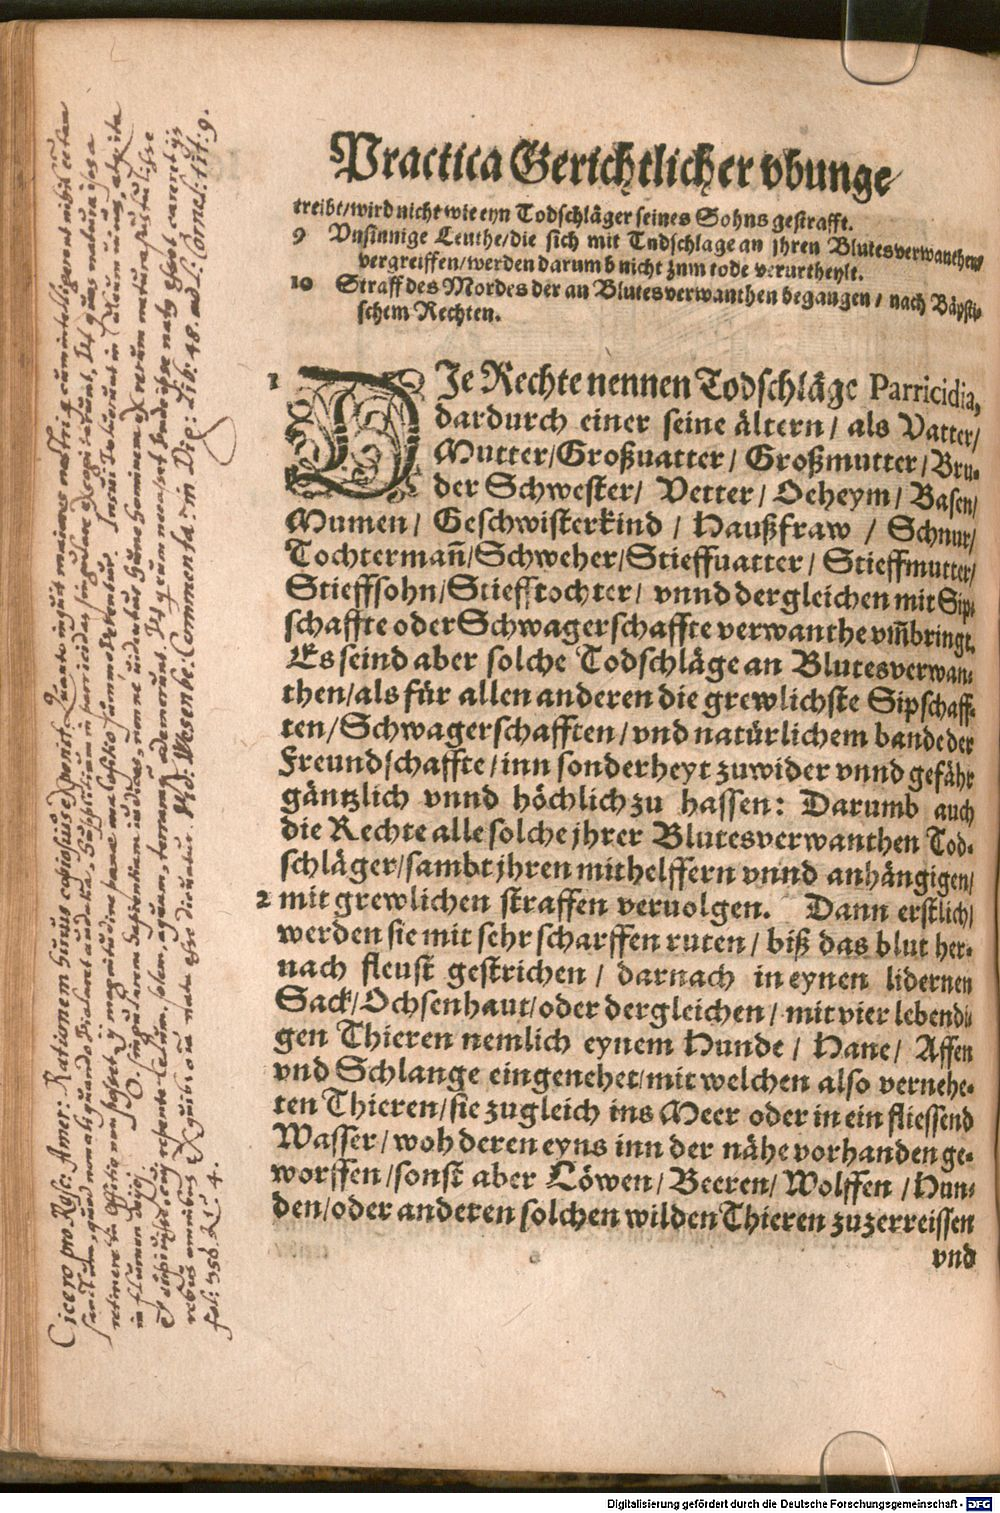 Practica Gerichtlicher vbunge
treibt/wird nicht wie eyn Todschläger seines Sohns gestrafft.
9 Vnsinnige Leuthe/die sich mit Todschlage an jhren Blutesverwanthen
vergreiffen/werden darumb nicht zum tode verurtheylt.
10 Straff des Mordes der an Blutesverwanthen begangen / nach Bäpsti-
schem Rechten.
1 DJe Rechte nennen Todschläge Parricidia,
dardurch einer seine ältern / als Vatter/
Mutter/Großuatter / Großmutter / Bru-
der Schwester/ Vetter / Oeheym / Basen/
Mumen/ Geschwisterkind / Haußfraw / Schnur/
Tochtermañ/Schweher/Stieffuatter / Stieffmutter/
Stieffsohn/Stiefftochter/ vnnd dergleichen mit Sip-
schaffte oder Schwagerschaffte verwanthe vm̃bringt.
Es seind aber solche Todschläge an Blutesverwan-
then/als für allen anderen die grewlichste Sipschaff-
ten/Schwagerschafften/ vnd natürlichem bande der
Freundschaffte/inn sonderheyt zuwider vnnd gefähr
gäntzlich vnnd höchlich zu hassen: Darumb auch
die Rechte alle solche jhrer Blutesverwanthen Tod-
schläger/sambt jhren mithelffern vnnd anhängigen/
2 mit grewlichen straffen veruolgen. Dann erstlich/
werden sie mit sehr scharffen ruten / biß das blut her-
nach fleust gestrichen / darnach in eynen lidernen
Sack/Ochsenhaut/oder dergleichen / mit vier lebendi-
gen Thieren nemlich eynem Hunde / Hane/ Affen
vnd Schlange eingenehet/mit welchen also vernehe-
ten Thieren/sie zugleich ins Meer oder in ein fliessend
Wasser/ woh deren eyns inn der nähe vorhanden ge-
worffen /sonst aber Löwen/ Beeren/ Wolffen /Hun-
den/oder anderen solchen wilden Thieren zuzerreissen
vnd
Cicero pro Rosc: Amer: Rationem huius copiosius exponit. Quanto inquit maiores nostri
singulare
retinere in officio non posset, magnitudine poenae maleficio summoverentur. Insui voluerunt in culeum
in flumen deijci. O singularem sapientiam iudices, nonne videntur hunc hominem ex rerum natura
cui repente coelum, solem, aquam, terramque ademerunt
rebus omnibus ex quibus omnia nata esse dicuntur. Vid: Wesenbe: Commenta: in Dig: Lib: 48. ad L: Cornel: tit: 9.
fol: 956. n. 4.
Digitalisierung gefördert durch die Deutsche Forschungsgemeinschaft - DFG